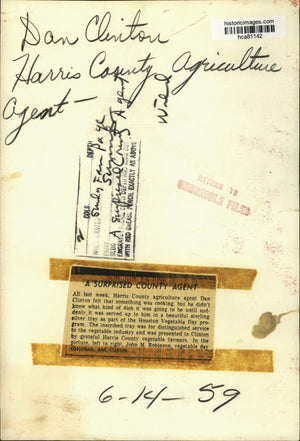 historicimages.com
hca81142
Dan Clinton
Harris County Agriculture
Agent-
Wed
2
COLS.
DEPTH
Only Farm Page
A Surprised County Agent
WITH RED GREASE PENCIL EXACTLY AS ABOVE
RETURN TO
CHRONICLE FILES
A SURPRISED COUNTY AGENT
All last week, Harris County agriculture agent Dan
Clinton felt that something was cooking, but he didn't
know what kind of dish it was going to be until sud-
denly it was served up to him in a beautiful sterling
silver tray as part of the Houston Vegetable Day pro-
gram. The inscribed tray was for distinguished service
to the vegetable industry and was presented to Clinton
by grateful Harris County vegetable farmers. In the
picture, left to right, John M. Robinson, vegetable day
chairman, and Clinton.
6-14-59